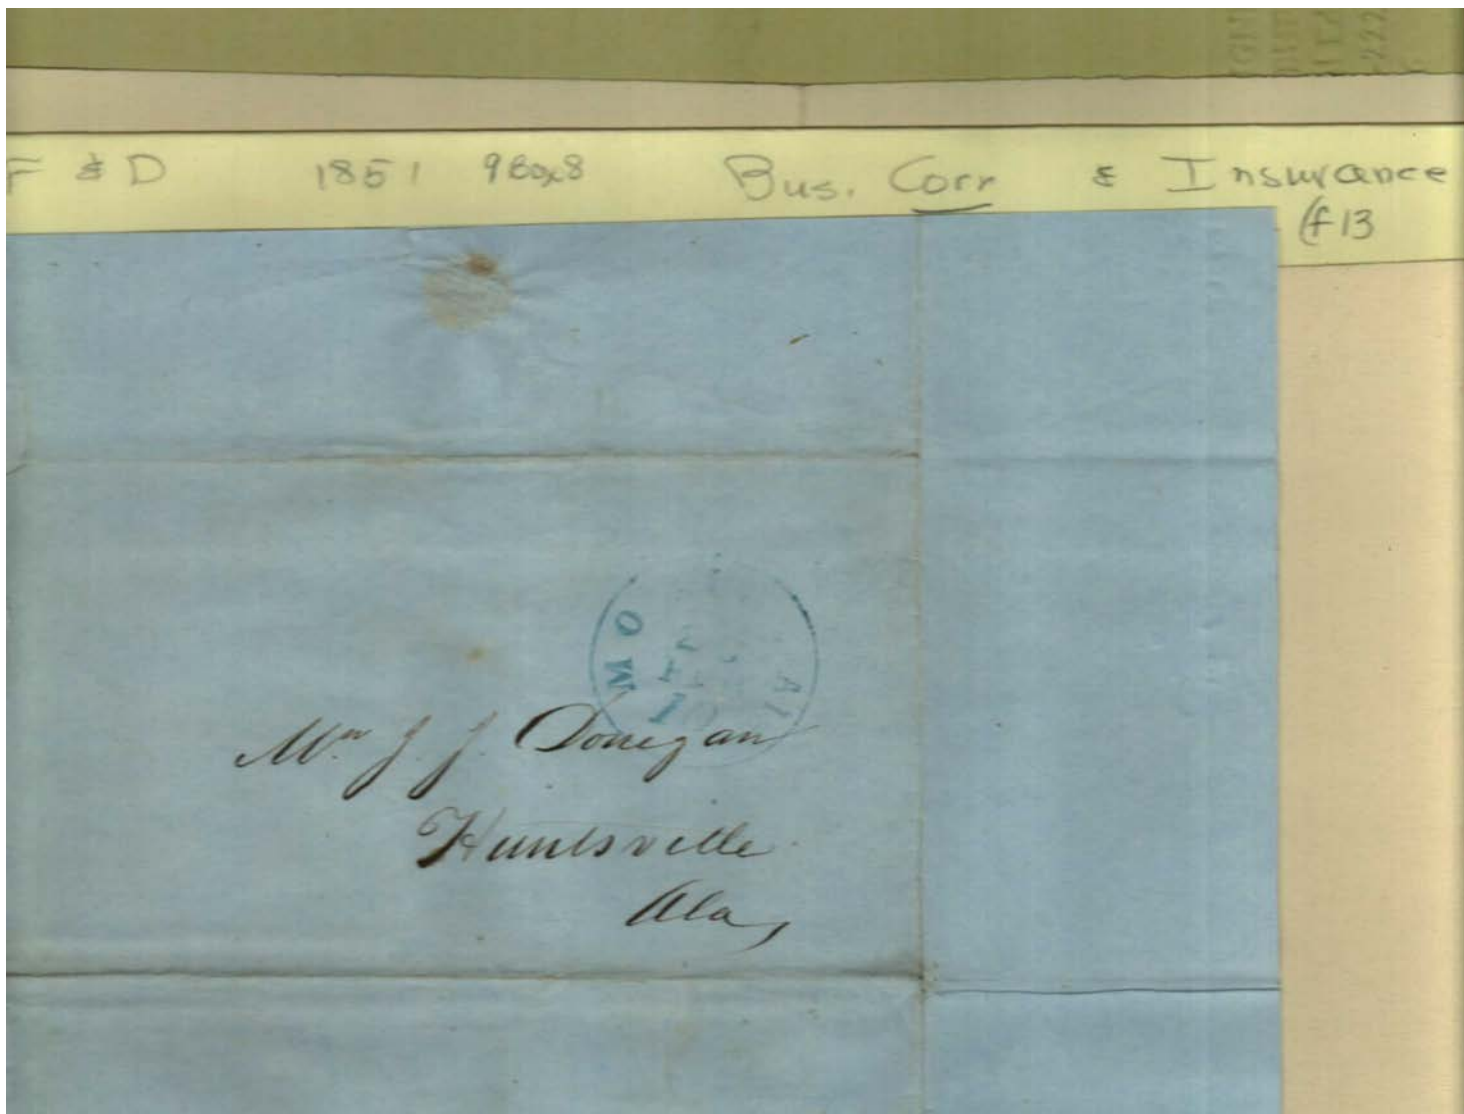 F & D 1851 9Box8 Bus. Corr & Insurance
(f13
MO
AL
Mr J. J. Donegan
Huntsville
Ala,